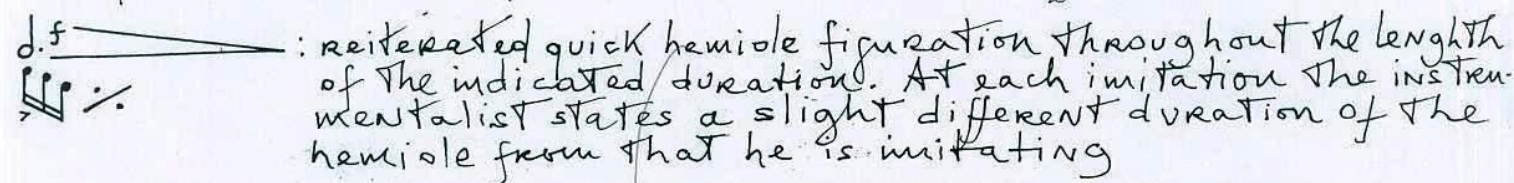 d.f : reiterated quick hemiole figuration throughout the lenghth
of the indicated duration. At each imitation the instru-
mentalist states a slight different duration of the
hemiole from that he is imitating